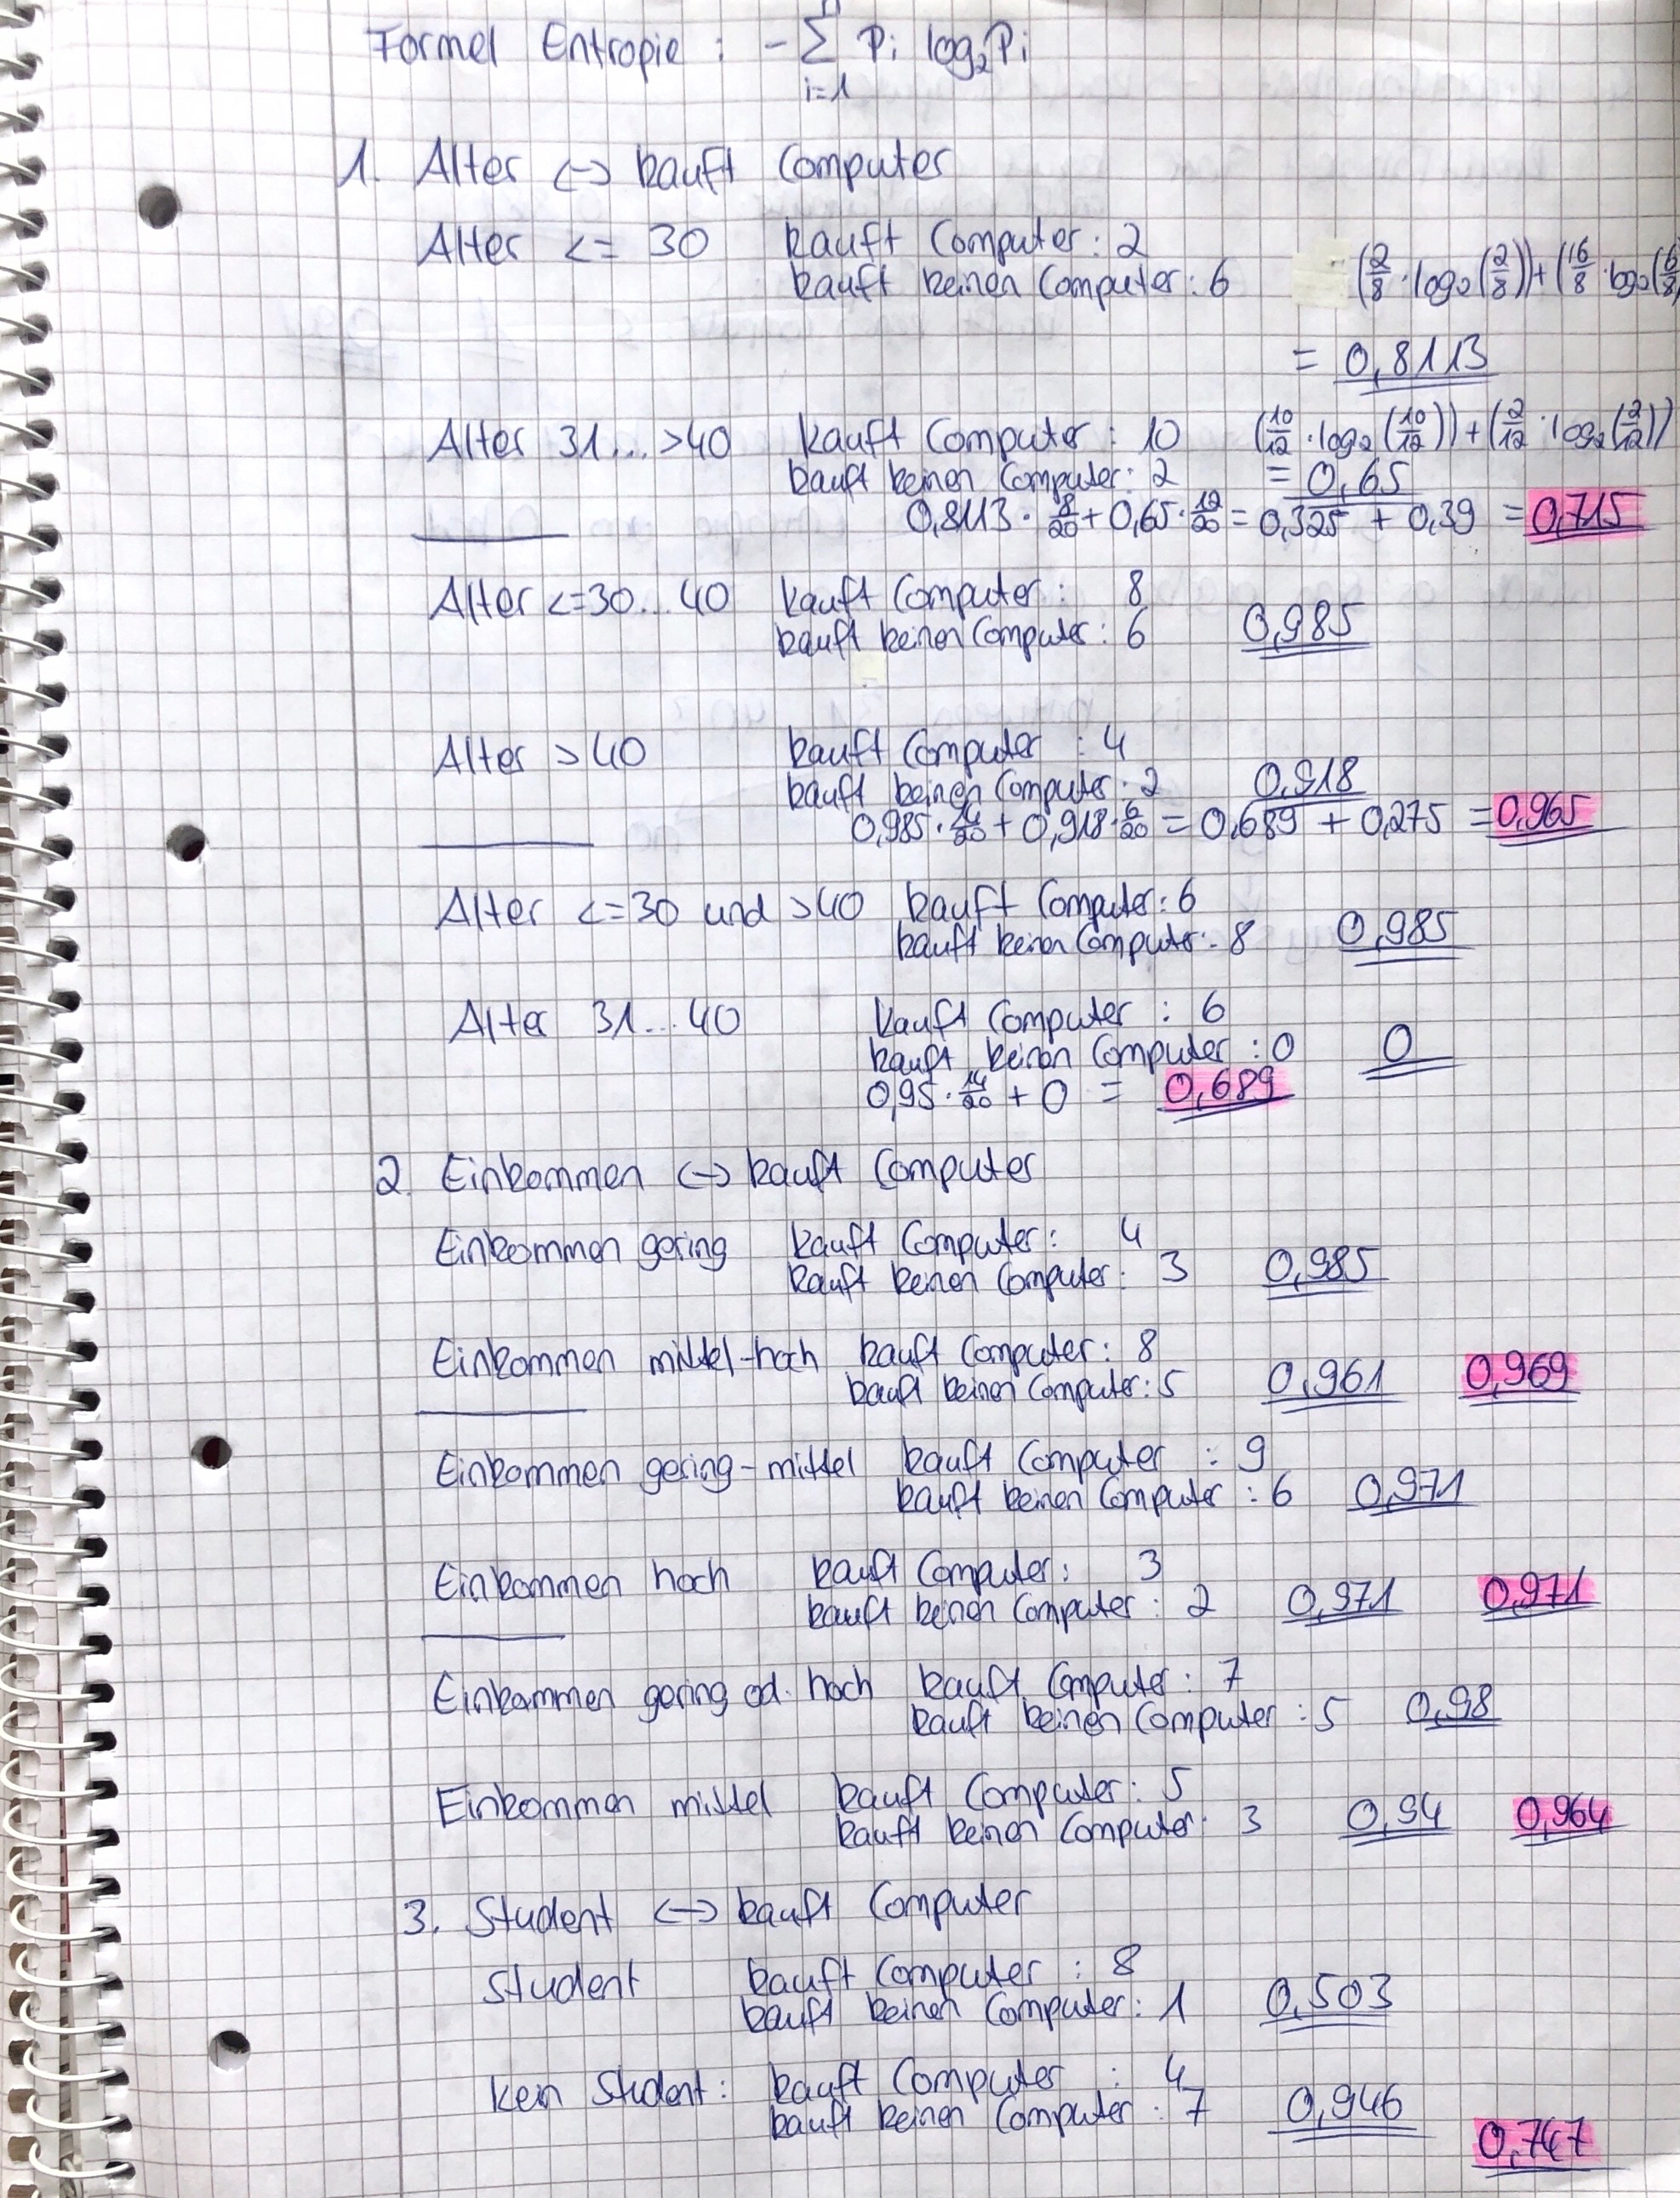 Formel Entropie : - n∑i=1 Pi log₂Pi
1. Alter <-> kauft Computer
Alter <= 30 kauft Computer: 2
kauft keinen Computer: 6 (2/8 · log₂(2/8)) + (16/8 · log₂(6/8)
= 0,8113
Alter 31...>40 kauft Computer: 10 (10/12 · log₂(10/12)) + (2/12 · log₂(2/12))
kauft keinen Computer: 2 = 0,65
0,8113 · 8/20 + 0,65 · 12/20 = 0,325 + 0,39 = 0,715
Alter <=30...40 kauft Computer: 8
kauft keinen Computer: 6 0,985
Alter >40 kauft Computer : 4
kauft keinen Computer: 2 0,918
0,985 · 14/20 + 0,918 · 6/20 = 0,689 + 0,275 = 0,965
Alter <=30 und >40 kauft Computer: 6
kauft keinen Computer: 8 0,985
Alter 31...40 kauft Computer : 6
kauft keinen Computer : 0 0
0,95 · 14/20 + 0 = 0,689
2. Einkommen <-> kauft Computer
Einkommen gering kauft Computer: 4
kauft keinen Computer: 3 0,985
Einkommen mittel-hoch kauft Computer: 8
kauft keinen Computer: 5 0,961 0,969
Einkommen gering-mittel kauft Computer : 9
kauft keinen Computer : 6 0,971
Einkommen hoch kauft Computer: 3
kauft keinen Computer : 2 0,971 0,971
Einkommen gering od. hoch kauft Computer: 7
kauft keinen Computer : 5 0,98
Einkommen mittel kauft Computer: 5
kauft keinen Computer: 3 0,94 0,964
3. Student <-> kauft Computer
Student kauft Computer : 8
kauft keinen Computer: 1 0,503
kein Student: kauft Computer : 4
kauft keinen Computer : 7 0,946
0,747